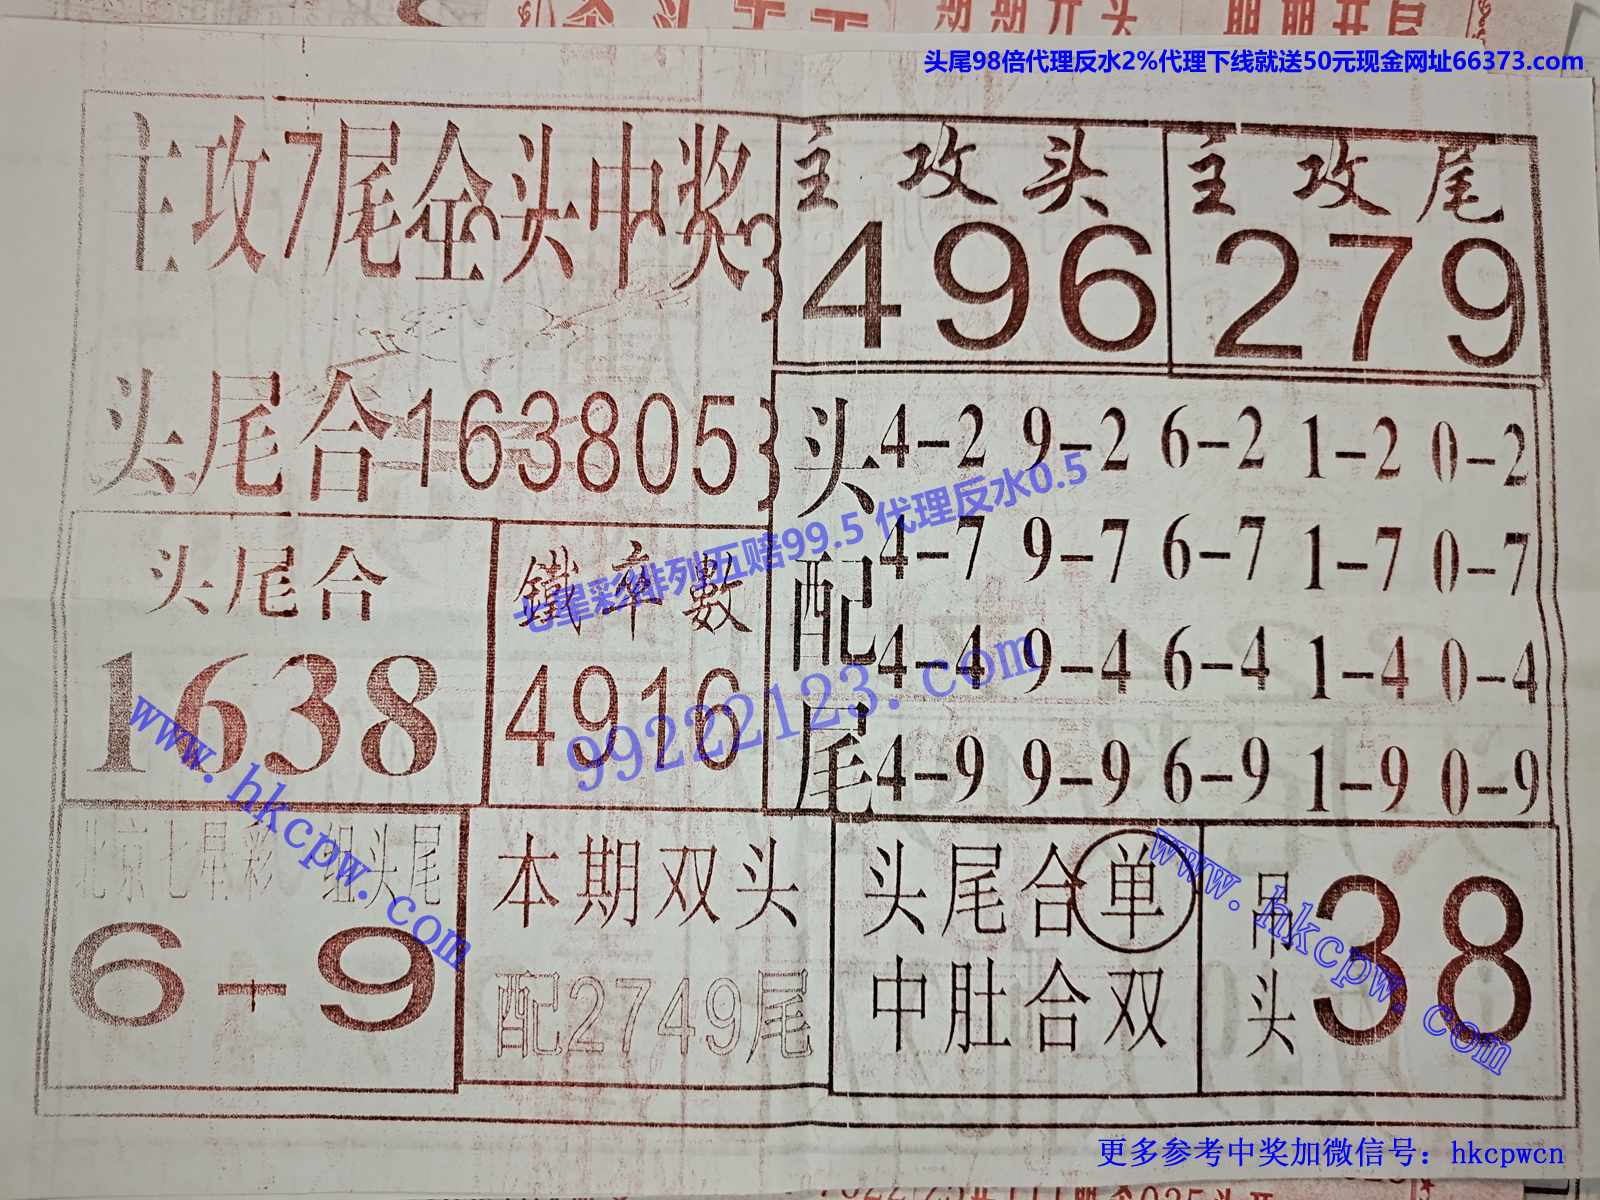 期期开头
头尾98倍代理反水2%代理下线就送50元现金网址66373.com
主攻7尾全头中奖
主攻头
496
主攻尾
279
头尾合163805
头配尾
4-2 9-2 6-2 1-2 0-2
4-7 9-7 6-7 1-7 0-7
4-4 9-4 6-4 1-4 0-4
4-9 9-9 6-9 1-9 0-9
七星彩排列五赔99.5 代理反水0.5
99222123.com
头尾合
1638
鐵率數
4916
www.hkcpw.com
北京七星彩 组头尾
6-9
本期双头
配2749尾
头尾合单
中肚合双
吊头38
www.hkcpw.com
更多参考中奖加微信号：hkcpwcn